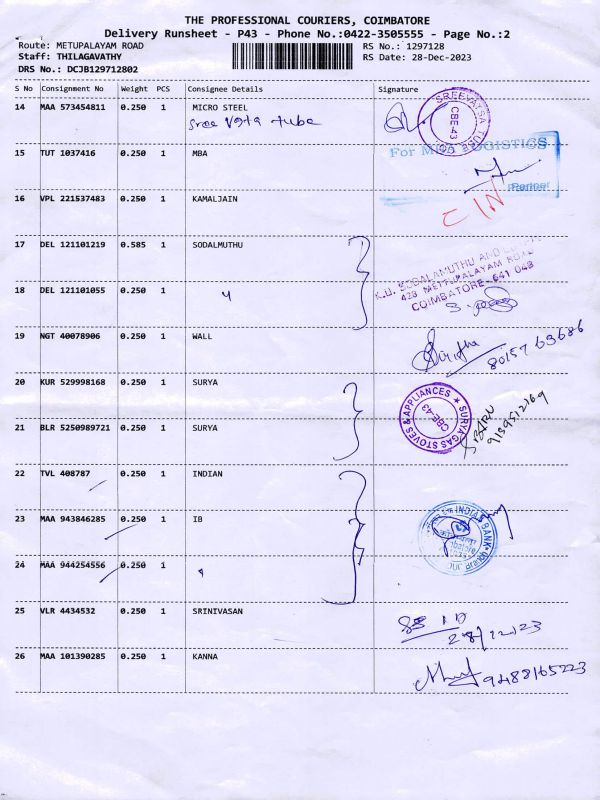 THE PROFESSIONAL COURIERS, COIMBATORE
Delivery Runsheet - P43 - Phone No.:0422-3505555 - Page No.:2
Route: METUPALAYAM ROAD
RS No.: 1297128
Staff: THILAGAVATHY
RS Date: 28-Dec-2023
DRS No.: DCJB129712802
S No Consignment No Weight PCS Consignee Details Signature
14 MAA 573454811 0.250 1 MICRO STEEL
Sree Vata tube
SREEVATSA TUBE CO. CBE-43
15 TUT 1037416 0.250 1 MBA
LOGISTICS
Partner
16 VPL 221537483 0.250 1 KAMALJAIN
17 DEL 121101219 0.585 1 SODALMUTHU
K.U. SODALAMUTHU AND
428 METTUPALAYAM ROAD
COIMBATORE-641 043
18 DEL 121101055 0.250 1
19 NGT 40078906 0.250 1 WALL
8015763686
20 KUR 529998168 0.250 1 SURYA
SURYA GAS STOVES & APPLIANCES CBE-43
21 BLR 5250989721 0.250 1 SURYA
22 TVL 408787 0.250 1 INDIAN
23 MAA 943846285 0.250 1 IB
INDIAN BANK
24 MAA 944254556 0.250 1
25 VLR 4434532 0.250 1 SRINIVASAN
28/12/2023
26 MAA 101390285 0.250 1 KANNA
9488165223